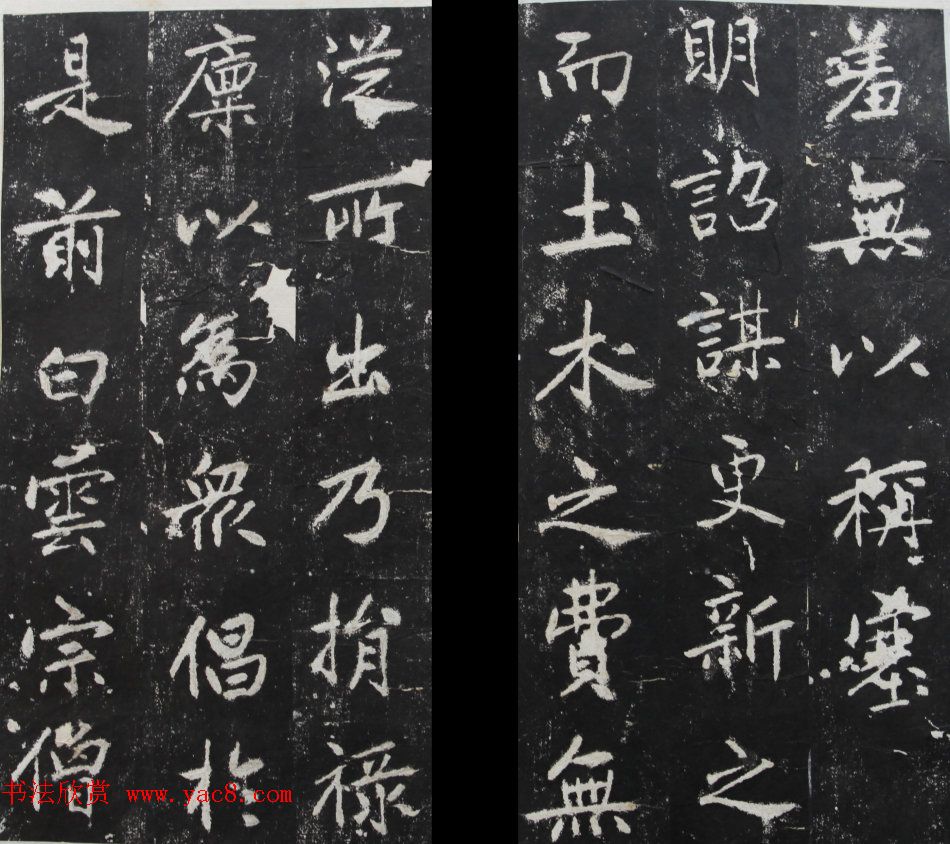 羞無以稱塞
明詔謀更新之
而土木之費無
從所出乃捐祿
廩以為眾倡於
是前白雲宗僧
书法欣赏 www.yac8.com